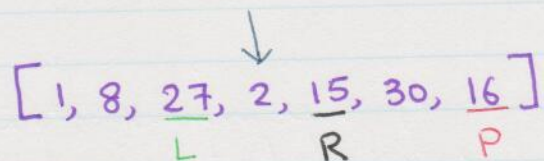 [1, 8, 27, 2, 15, 30, 16]
L R P